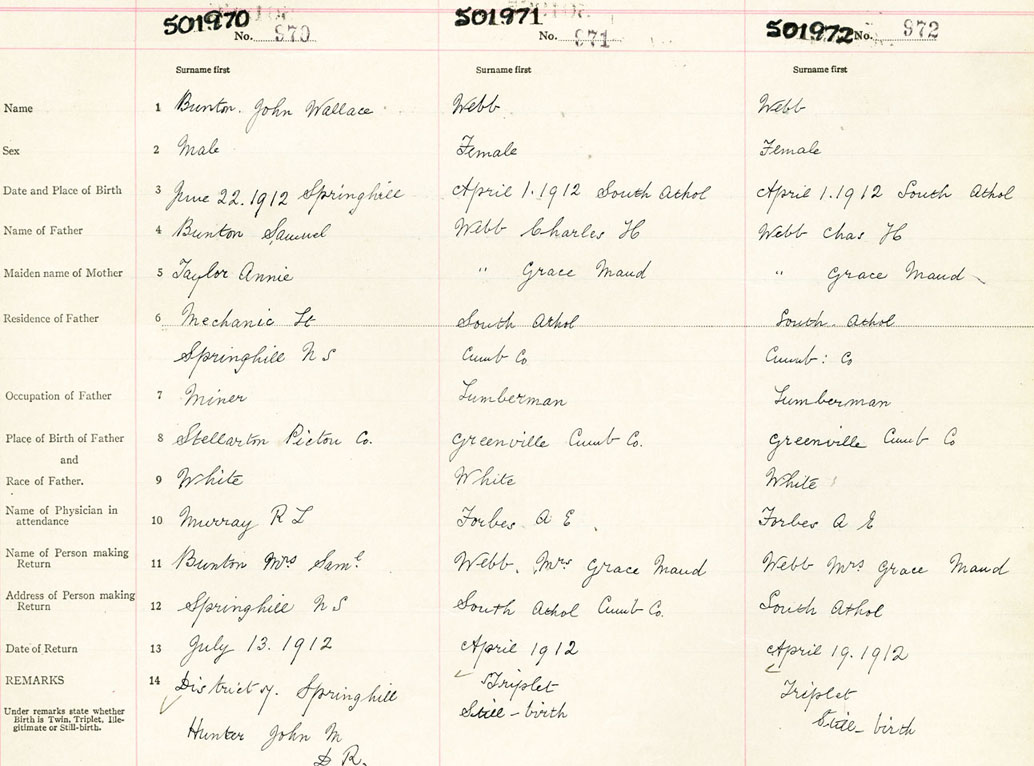 501970 501971 501972
No. 970 No. 971 No. 972
Surname first Surname first Surname first
Name 1 Bunton. John Wallace Webb Webb
Sex 2 Male Female Female
Date and Place of Birth 3 June 22.1912 Springhill April 1.1912 South Athol April 1.1912 South Athol
Name of Father 4 Bunton Samuel Webb Charles H Webb Chas H
Maiden name of Mother 5 Taylor Annie " Grace Maud " Grace Maud
Residence of Father 6 Mechanic St South Athol South. Athol
Springhill N S Cumb Co Cumb: Co
Occupation of Father 7 Miner Lumberman Lumberman
Place of Birth of Father 8 Stellarton Pictou Co. Greenville Cumb Co. Greenville Cumb Co
and
Race of Father. 9 White White White
Name of Physician in
attendance 10 Murray R L Forbes A E Forbes A E
Name of Person making
Return 11 Bunton Mrs Saml Webb. Mrs Grace Maud Webb Mrs Grace Maud
Address of Person making
Return 12 Springhill N S South Athol Cumb Co. South Athol
Date of Return 13 July 13. 1912 April 1912 April 19. 1912
REMARKS 14 District 7. Springhill Triplet Triplet
Under remarks state whether
Birth is Twin, Triplet, Ille-
gitimate or Still-birth. Still-birth Still-birth
Hunter John M
D R.